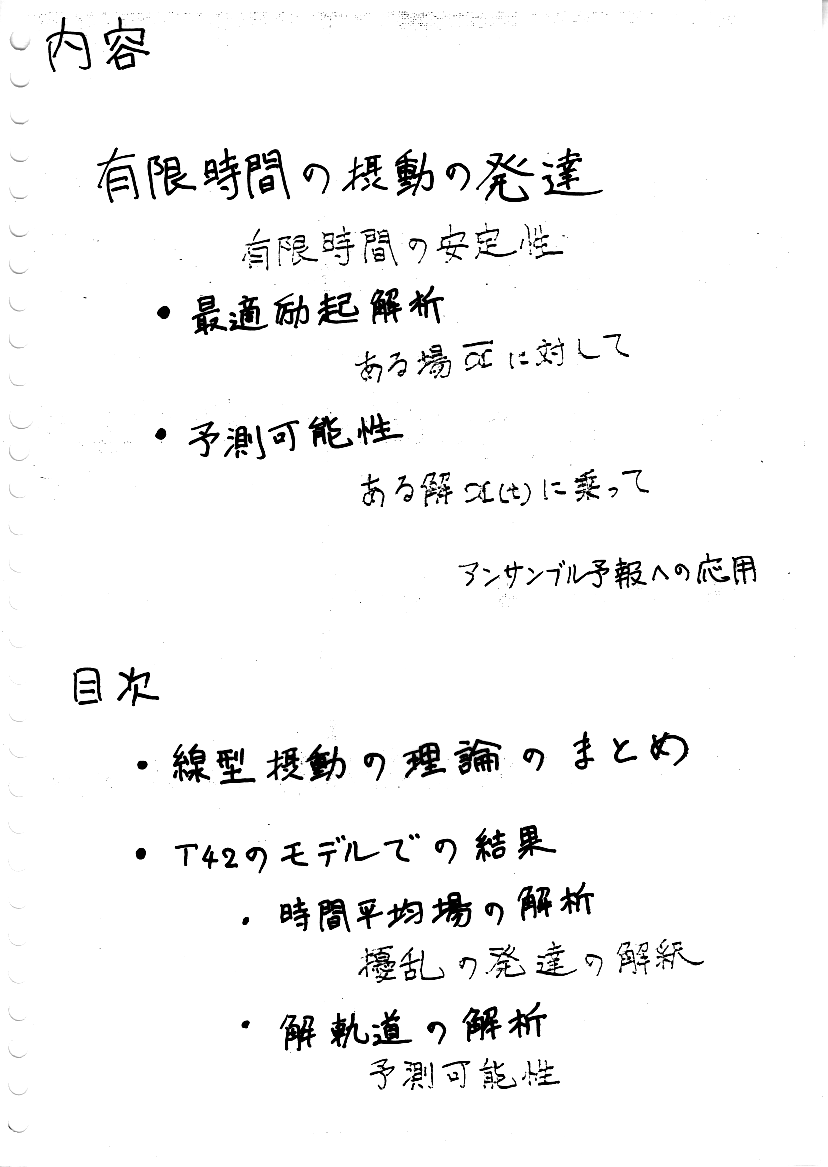 内容
有限時間の摂動の発達
有限時間の安定性
・最適励起解析
ある場 x̅ に対して
・予測可能性
ある解 x(t) に乗って
アンサンブル予報への応用
目次
・線型摂動の理論のまとめ
・T42のモデルでの結果
・時間平均場の解析
擾乱の発達の解釈
・解軌道の解析
予測可能性